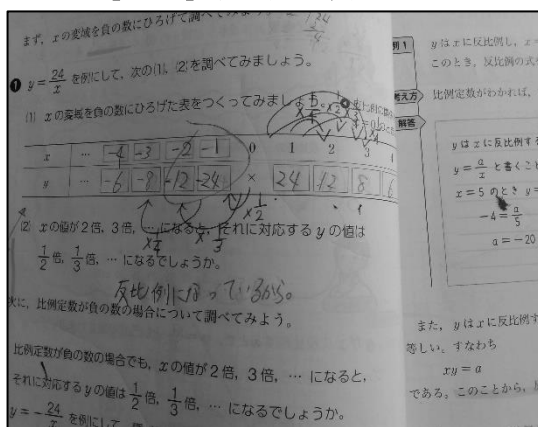 まず，xの変域を負の数にひろげて調べてみ
❶ y=24/x を例にして，次の(1)，(2)を調べてみましょう。
(1) xの変域を負の数にひろげた表をつくってみましょ
x … -4 -3 -2 -1 0 1 2 3
y … -6 -8 -12 -24 × 24 12 8 6
×1/2
×1/4 ×1/3
(2) xの値が2倍，3倍，…になると，それに対応するyの値は
1/2倍，1/3倍，… になるでしょうか。
反比例になっているから。
次に，比例定数が負の数の場合について調べてみよう。
比例定数が負の数の場合でも，xの値が2倍，3倍，… になると，
それに対応するyの値は 1/2倍，1/3倍，… になるでしょうか。
y=-24/x を例にして，
例1 yはxに反比例し，x=
このとき，反比例の式
考え方 比例定数がわかれば，
解答
yはxに反比例する
y=a/x と書くこと
x=5 のとき y=
-4=a/5
a=-20
また，yはxに反比例す
等しい。すなわち
xy=a
である。このことから，